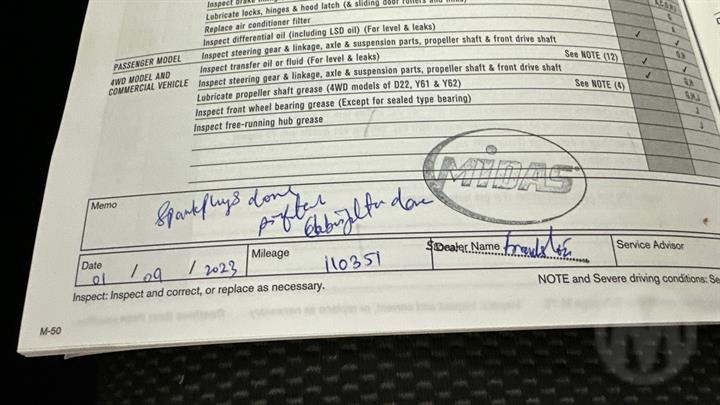 Lubricate locks, hinges & hood latch (& sliding door
Replace air conditioner filter
Inspect differential oil (including LSD oil) (For level & leaks)
PASSENGER MODEL
Inspect steering gear & linkage, axle & suspension parts, propeller shaft & front drive shaft
4WD MODEL AND
COMMERCIAL VEHICLE
Inspect transfer oil or fluid (For level & leaks) See NOTE (12)
Inspect steering gear & linkage, axle & suspension parts, propeller shaft & front drive shaft
Lubricate propeller shaft grease (4WD models of D22, Y61 & Y62) See NOTE (4)
Inspect front wheel bearing grease (Except for sealed type bearing)
Inspect free-running hub grease
MIDAS
Memo
Sparkplugs done
done
Date 01 / 09 / 2023
Mileage 110351
Dealer Name
Service Advisor
Inspect: Inspect and correct, or replace as necessary.
NOTE and Severe driving conditions: Se
M-50